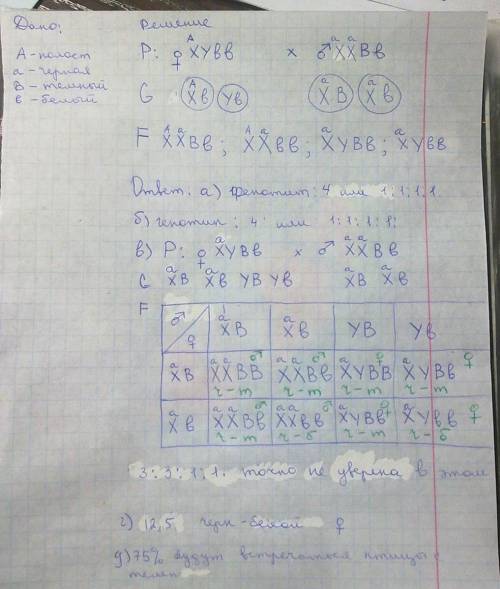 Дано:
Решение
A - полост
a - черная
B - темный
в - белый
P: ♀ XᴬYвв x ♂ XᵃXᵃBв
G Xᴬв Yв XᵃB Xᵃв
F XᴬXᵃBв; XᴬXᵃвв; XᵃYBв; XᵃYвв
Ответ: а) фенотип: 4 или 1:1:1:1
б) генотип: 4 или 1:1:1:1
в) P: ♀ XᵃYBв x ♂ XᵃXᵃBв
G XᵃB Xᵃв YB Yв XᵃB Xᵃв
F
♂ ♀ XᵃB Xᵃв YB Yв
XᵃB XᵃXᵃBB ♂ XᵃXᵃBв ♂ XᵃYBB ♀ XᵃYBв ♀
ч-т ч-т ч-т ч-т
Xᵃв XᵃXᵃBв ♂ XᵃXᵃвв XᵃYBв ♀ XᵃYвв ♀
ч-т ч-б ч-т ч-б
3:3:1:1. точно не уверена в этом
г) 12,5 черн-белой ♀
д) 75% будут встречаться птицы с
темн